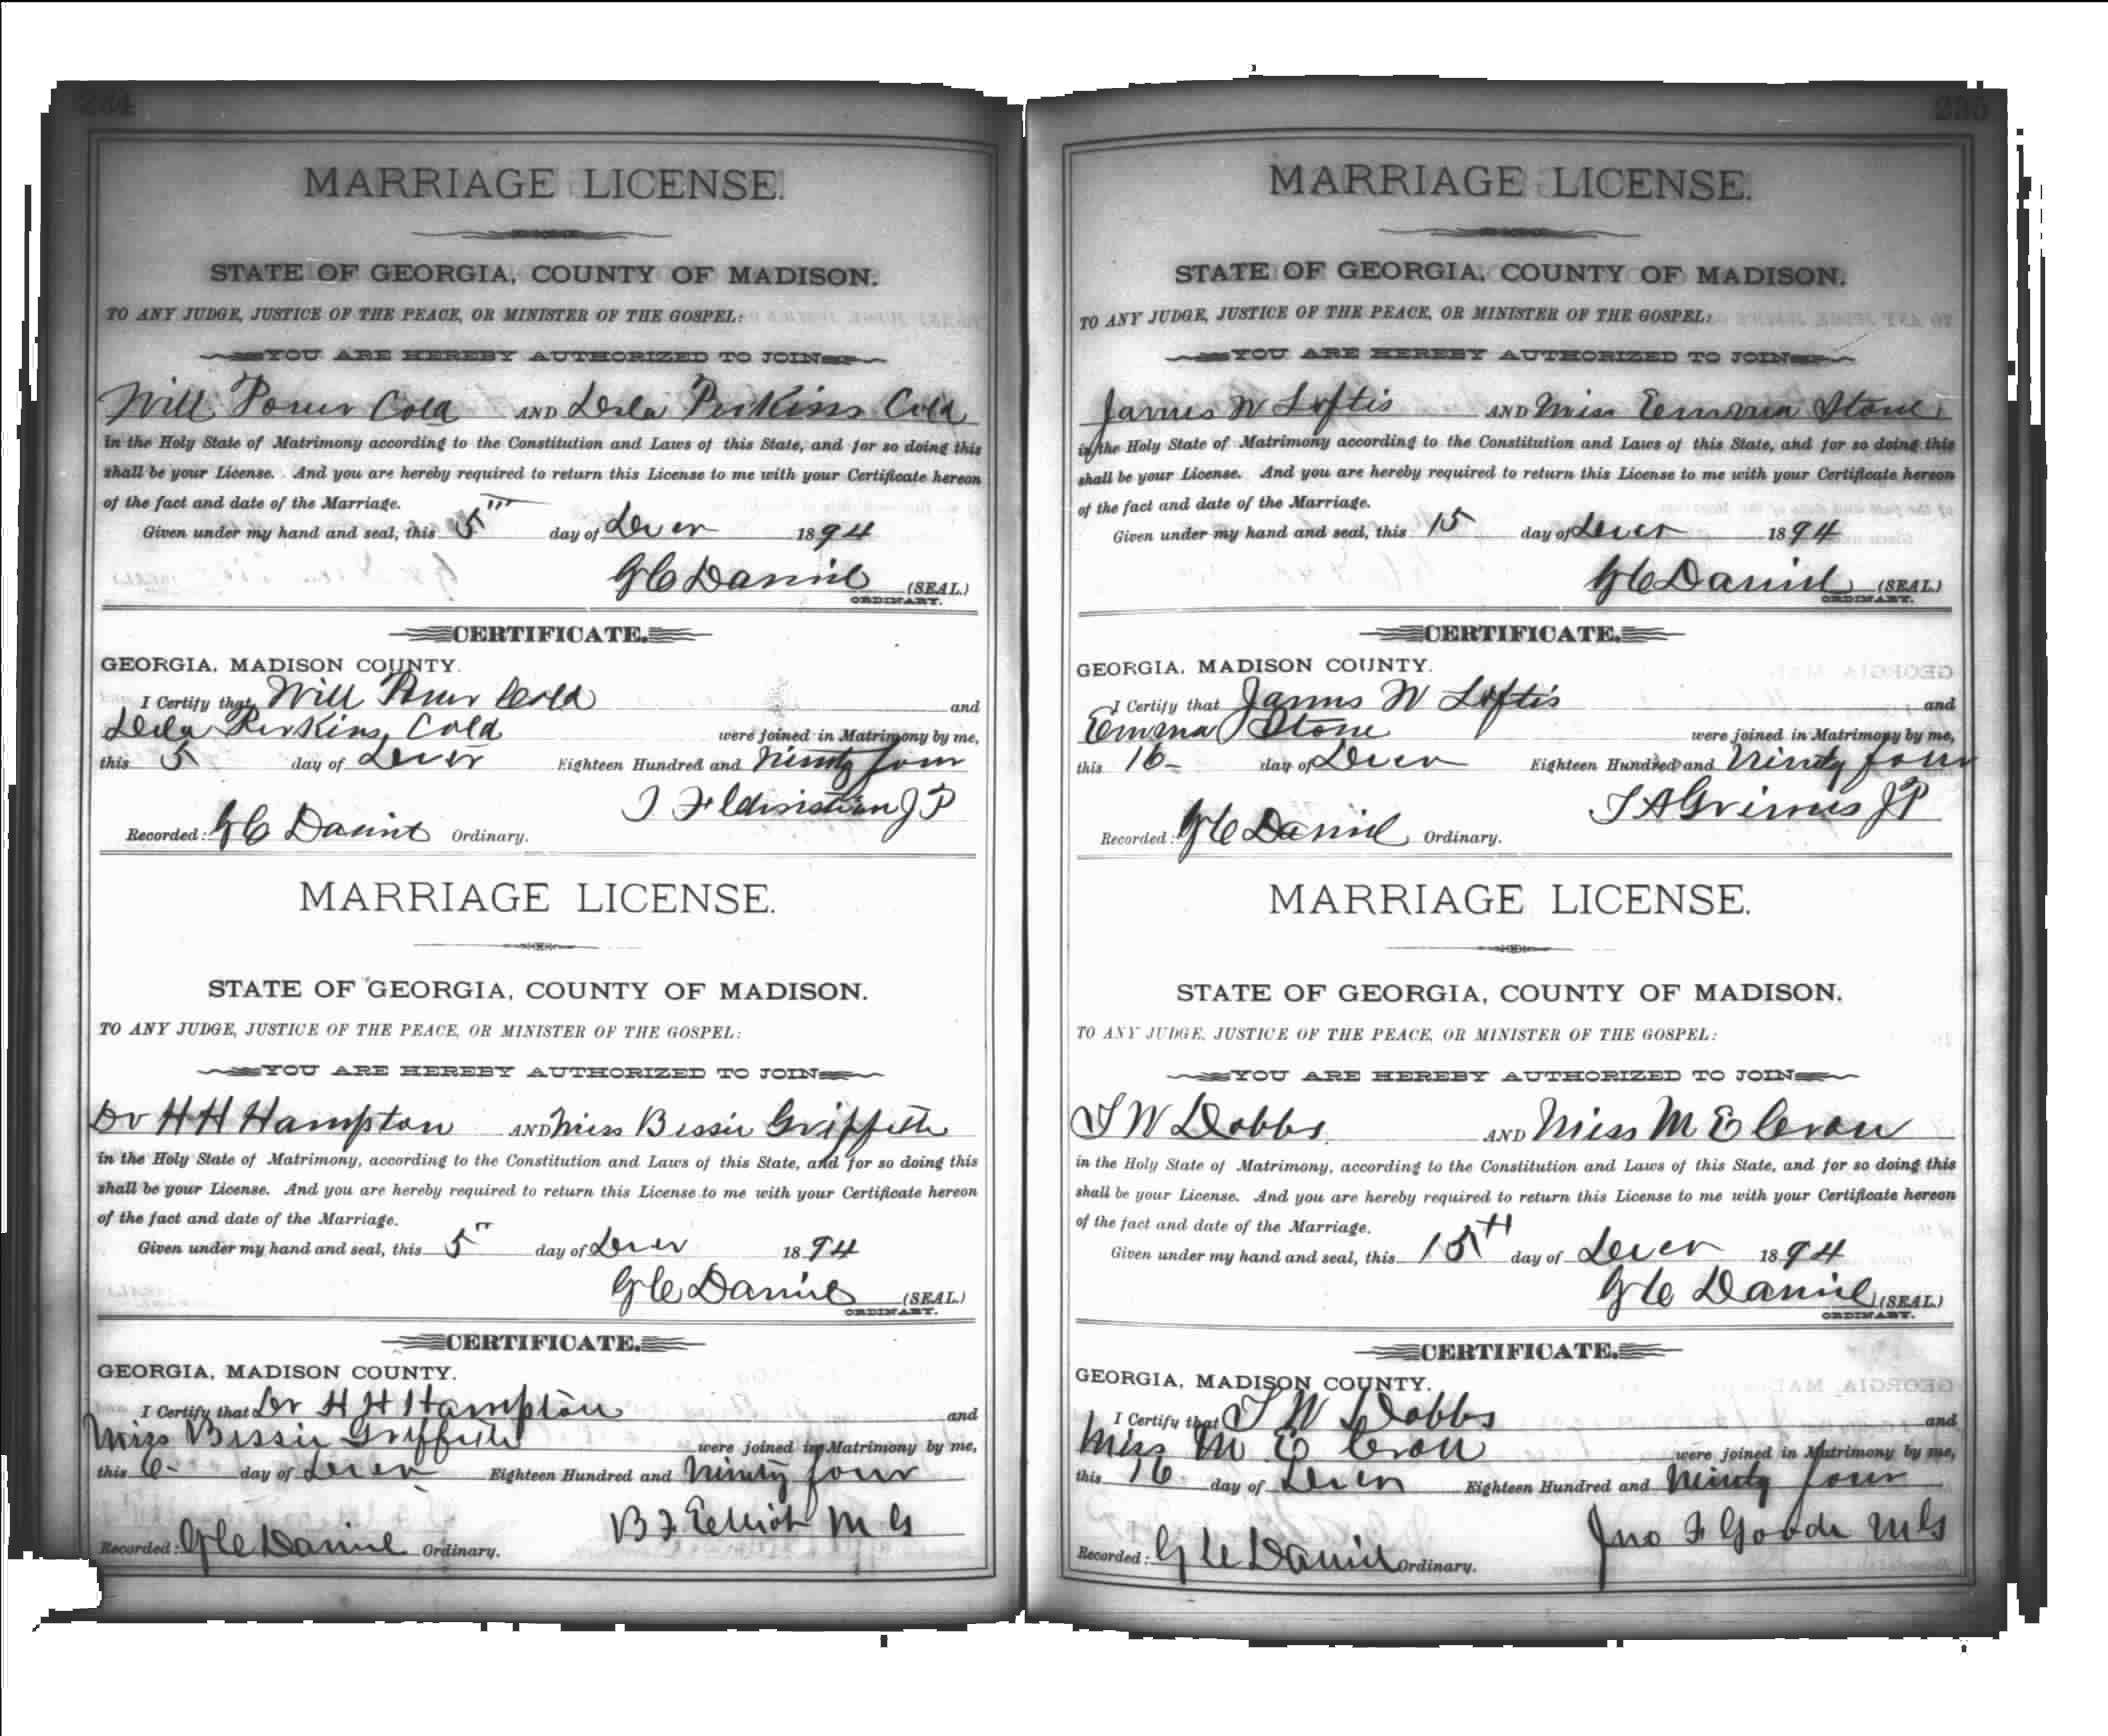 234
MARRIAGE LICENSE.
STATE OF GEORGIA, COUNTY OF MADISON.
TO ANY JUDGE, JUSTICE OF THE PEACE, OR MINISTER OF THE GOSPEL:
YOU ARE HEREBY AUTHORIZED TO JOIN
Will Power Cold AND Lela Perkins Cold
in the Holy State of Matrimony according to the Constitution and Laws of this State, and for so doing this
shall be your License. And you are hereby required to return this License to me with your Certificate hereon
of the fact and date of the Marriage.
Given under my hand and seal, this 5th day of Decr 1894
G C Daniel (SEAL.)
ORDINARY.
CERTIFICATE.
GEORGIA, MADISON COUNTY.
I Certify that Will Power Cold and
Lela Perkins Cold were joined in Matrimony by me,
this 5 day of Decr Eighteen Hundred and Ninety four
J P
Recorded: G C Daniel Ordinary.
MARRIAGE LICENSE.
STATE OF GEORGIA, COUNTY OF MADISON.
TO ANY JUDGE, JUSTICE OF THE PEACE, OR MINISTER OF THE GOSPEL:
YOU ARE HEREBY AUTHORIZED TO JOIN
Dr H H Hampton AND Miss Bessie Griffeth
in the Holy State of Matrimony, according to the Constitution and Laws of this State, and for so doing this
shall be your License. And you are hereby required to return this License to me with your Certificate hereon
of the fact and date of the Marriage.
Given under my hand and seal, this 5 day of Decr 1894
G C Daniel (SEAL.)
ORDINARY.
CERTIFICATE.
GEORGIA, MADISON COUNTY.
I Certify that Dr H H Hampton and
Miss Bessie Griffeth were joined in Matrimony by me,
this 6- day of Decr Eighteen Hundred and Ninety four
B F Elliot M G
Recorded: G C Daniel Ordinary.
235
MARRIAGE LICENSE.
STATE OF GEORGIA, COUNTY OF MADISON.
TO ANY JUDGE, JUSTICE OF THE PEACE, OR MINISTER OF THE GOSPEL:
YOU ARE HEREBY AUTHORIZED TO JOIN
James W Loftis AND Miss Emma Stone
in the Holy State of Matrimony according to the Constitution and Laws of this State, and for so doing this
shall be your License. And you are hereby required to return this License to me with your Certificate hereon
of the fact and date of the Marriage.
Given under my hand and seal, this 15 day of Decr 1894
G C Daniel (SEAL.)
ORDINARY.
CERTIFICATE.
GEORGIA, MADISON COUNTY.
I Certify that James W Loftis and
Emma Stone were joined in Matrimony by me,
this 16- day of Decr Eighteen Hundred and Ninety four
T A Grimes J P
Recorded: G C Daniel Ordinary.
MARRIAGE LICENSE.
STATE OF GEORGIA, COUNTY OF MADISON.
TO ANY JUDGE, JUSTICE OF THE PEACE, OR MINISTER OF THE GOSPEL:
YOU ARE HEREBY AUTHORIZED TO JOIN
T W Dobbs AND Miss M E
in the Holy State of Matrimony, according to the Constitution and Laws of this State, and for so doing this
shall be your License. And you are hereby required to return this License to me with your Certificate hereon
of the fact and date of the Marriage.
Given under my hand and seal, this 15th day of Decr 1894
G C Daniel (SEAL.)
ORDINARY.
CERTIFICATE.
GEORGIA, MADISON COUNTY.
I Certify that T W Dobbs and
Miss M E were joined in Matrimony by me,
this 16 day of Decr Eighteen Hundred and Ninety four
Jno F Goode M G
Recorded: G C Daniel Ordinary.